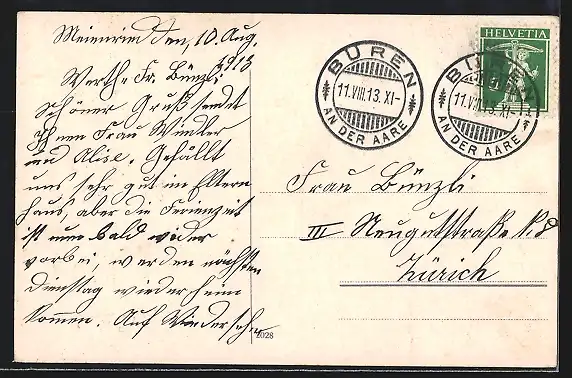 Meienried den, 10. Aug.
1913
Werthe Fr. Bünzli
Schöner Gruß sendet
Ihnen Frau Winkler
und Alise. Gefällt
uns sehr gut im Eltern
haus, aber die Ferienzeit
ist nun bald wieder
vorbei, werden nächsten
Dienstag wieder heim
kommen. Auf Wiedersehn
HELVETIA
BÜREN
11.VIII.13.XI-
AN DER AARE
BÜREN
11.VIII.13.XI-
AN DER AARE
Frau Bünzli
III Neugutstraße No 8
Zürich
2028